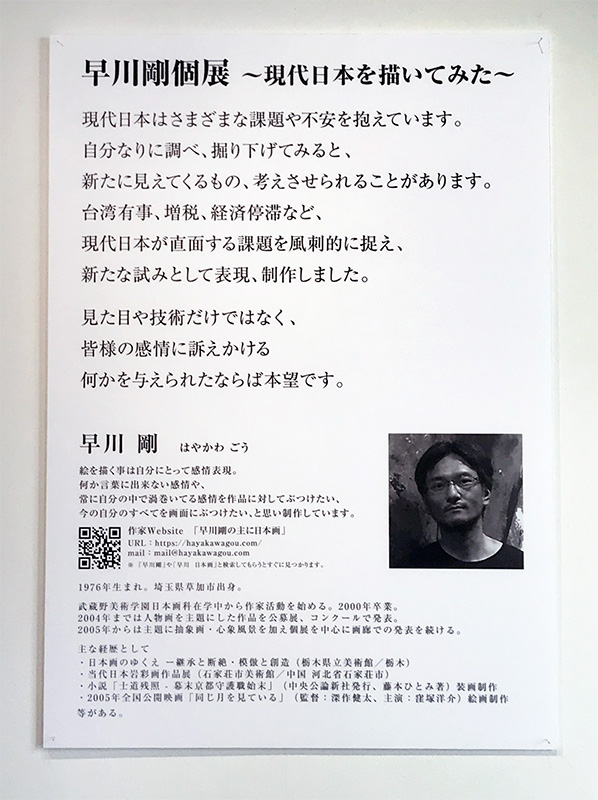 早川剛個展 ～現代日本を描いてみた～
現代日本はさまざまな課題や不安を抱えています。
自分なりに調べ、掘り下げてみると、
新たに見えてくるもの、考えさせられることがあります。
台湾有事、増税、経済停滞など、
現代日本が直面する課題を風刺的に捉え、
新たな試みとして表現、制作しました。
見た目や技術だけではなく、
皆様の感情に訴えかける
何かを与えられたならば本望です。
早川 剛 はやかわ ごう
絵を描く事は自分にとって感情表現。
何か言葉に出来ない感情や、
常に自分の中で渦巻いてる感情を作品に対してぶつけたい、
今の自分のすべてを画面にぶつけたい、と思い制作しています。
作家Website 「早川剛の主に日本画」
URL：https://hayakawagou.com/
mail：mail@hayakawagou.com
※「早川剛」や「早川 日本画」と検索してもらうとすぐに見つかります。
1976年生まれ。埼玉県草加市出身。
武蔵野美術学園日本画科在学中から作家活動を始める。2000年卒業。
2004年までは人物画を主題にした作品を公募展、コンクールで発表。
2005年からは主題に抽象画・心象風景を加え個展を中心に画廊での発表を続ける。
主な経歴として
・日本画のゆくえ ー継承と断絶・模倣と創造（栃木県立美術館／栃木）
・当代日本岩彩画作品展（石家荘市美術館／中国 河北省石家荘市）
・小説「士道残照 - 幕末京都守護職始末」（中央公論新社発行、藤本ひとみ著）装画制作
・2005年全国公開映画「同じ月を見ている」（監督：深作健太、主演：窪塚洋介）絵画制作
等がある。